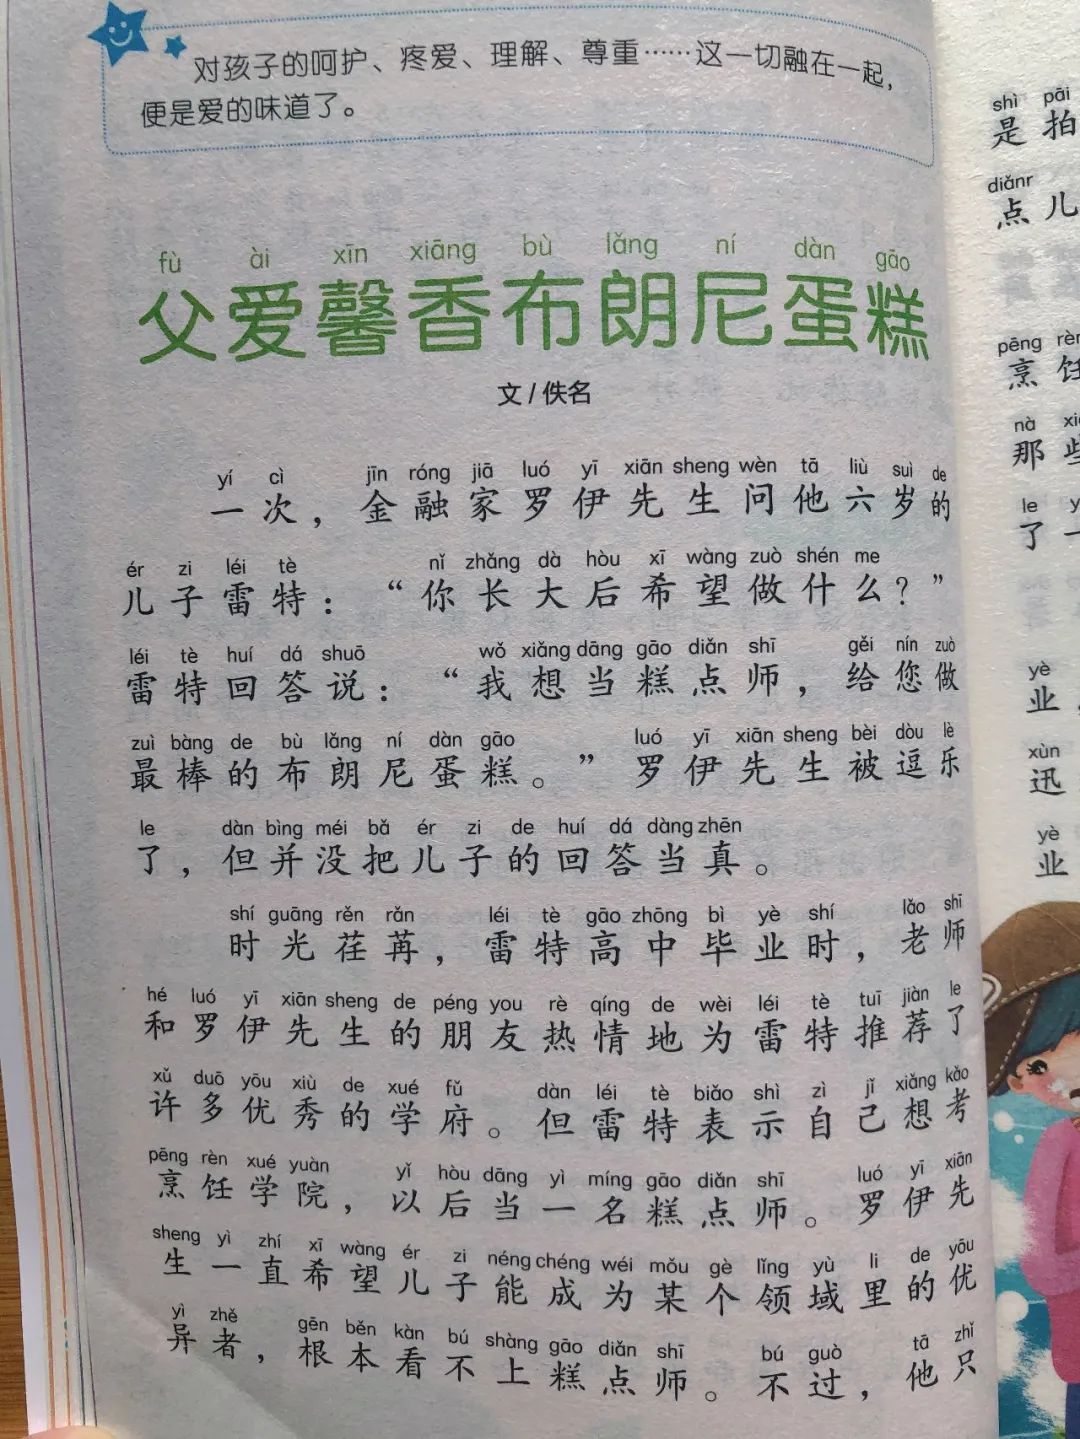 对孩子的呵护、疼爱、理解、尊重……这一切融在一起，
便是爱的味道了。
fù ài xīn xiāng bù lǎng ní dàn gāo
父爱馨香布朗尼蛋糕
文/佚名
yí cì jīn róng jiā luó yī xiān sheng wèn tā liù suì de
一次，金融家罗伊先生问他六岁的
ér zi léi tè nǐ zhǎng dà hòu xī wàng zuò shén me
儿子雷特：“你长大后希望做什么？”
léi tè huí dá shuō wǒ xiǎng dāng gāo diǎn shī gěi nín zuò
雷特回答说：“我想当糕点师，给您做
zuì bàng de bù lǎng ní dàn gāo luó yī xiān sheng bèi dòu lè
最棒的布朗尼蛋糕。”罗伊先生被逗乐
le dàn bìng méi bǎ ér zi de huí dá dàng zhēn
了，但并没把儿子的回答当真。
shí guāng rěn rǎn léi tè gāo zhōng bì yè shí lǎo shī
时光荏苒，雷特高中毕业时，老师
hé luó yī xiān sheng de péng you rè qíng de wèi léi tè tuī jiàn le
和罗伊先生的朋友热情地为雷特推荐了
xǔ duō yōu xiù de xué fǔ dàn léi tè biǎo shì zì jǐ xiǎng kǎo
许多优秀的学府。但雷特表示自己想考
pēng rèn xué yuàn yǐ hòu dāng yì míng gāo diǎn shī luó yī xiān
烹饪学院，以后当一名糕点师。罗伊先
sheng yì zhí xī wàng ér zi néng chéng wéi mǒu gè lǐng yù li de yōu
生一直希望儿子能成为某个领域里的优
yì zhě gēn běn kàn bú shàng gāo diǎn shī bú guò tā zhǐ
异者，根本看不上糕点师。不过，他只
shì pāi
是拍
diǎnr
点儿
pēng rèn
烹饪
nà xiē
那些
le
了一
yè
业，
xùn
迅
yè
业